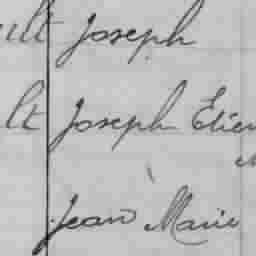 ult Joseph
lt Joseph Etien
Jean Marie